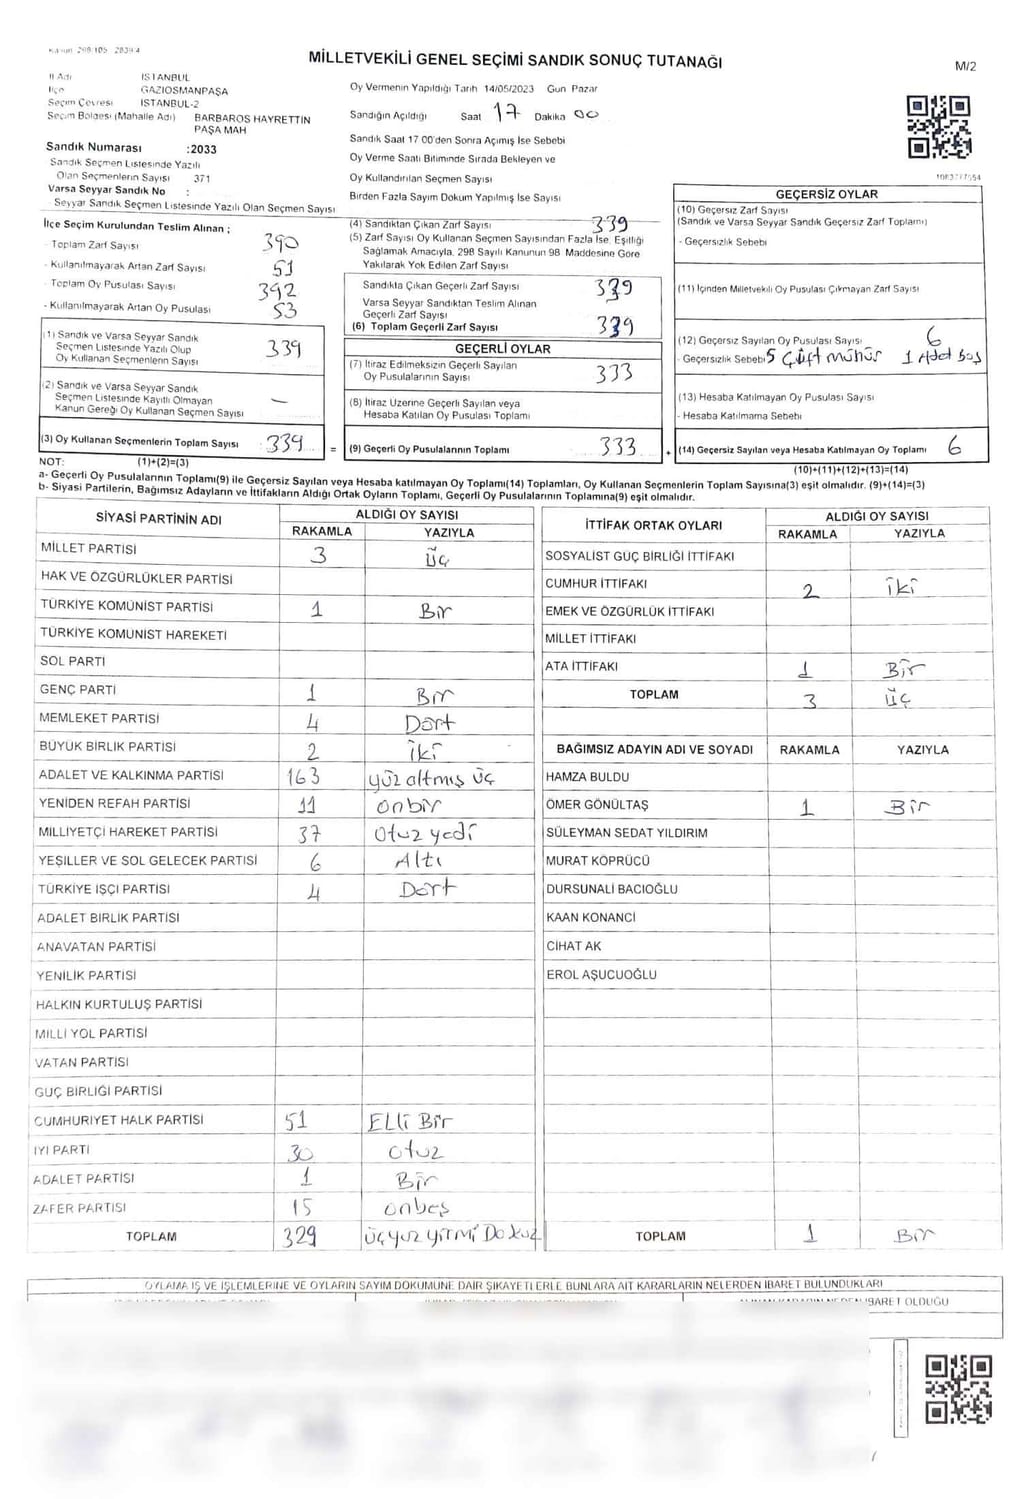 Kanun 298/105 2839/4
MİLLETVEKİLİ GENEL SEÇİMİ SANDIK SONUÇ TUTANAĞI
M/2
İl Adı İSTANBUL
İlçe GAZİOSMANPAŞA
Seçim Çevresi İSTANBUL-2
Seçim Bölgesi (Mahalle Adı) BARBAROS HAYRETTİN PAŞA MAH
Sandık Numarası :2033
Sandık Seçmen Listesinde Yazılı
Olan Seçmenlerin Sayısı 371
Varsa Seyyar Sandık No :
Seyyar Sandık Seçmen Listesinde Yazılı Olan Seçmen Sayısı
Oy Vermenin Yapıldığı Tarih 14/05/2023 Gün Pazar
Sandığın Açıldığı Saat 17 Dakika 00
Sandık Saat 17 00'den Sonra Açımış İse Sebebi
Oy Verme Saati Bitiminde Sırada Bekleyen ve
Oy Kullandırılan Seçmen Sayısı
Birden Fazla Sayım Döküm Yapılmış İse Sayısı
İlçe Seçim Kurulundan Teslim Alınan ;
- Toplam Zarf Sayısı 390
- Kullanılmayarak Artan Zarf Sayısı 51
- Toplam Oy Pusulası Sayısı 392
- Kullanılmayarak Artan Oy Pusulası 53
(1) Sandık ve Varsa Seyyar Sandık
Seçmen Listesinde Yazılı Olup
Oy Kullanan Seçmenlerin Sayısı 339
(2) Sandık ve Varsa Seyyar Sandık
Seçmen Listesinde Kayıtlı Olmayan
Kanun Gereği Oy Kullanan Seçmen Sayısı —
(3) Oy Kullanan Seçmenlerin Toplam Sayısı 339 =
(4) Sandıktan Çıkan Zarf Sayısı 339
(5) Zarf Sayısı Oy Kullanan Seçmen Sayısından Fazla İse, Eşitliği
Sağlamak Amacıyla, 298 Sayılı Kanunun 98 Maddesine Göre
Yakılarak Yok Edilen Zarf Sayısı
Sandıkta Çıkan Geçerli Zarf Sayısı 339
Varsa Seyyar Sandıktan Teslim Alınan
Geçerli Zarf Sayısı
(6) Toplam Geçerli Zarf Sayısı 339
GEÇERLİ OYLAR
(7) İtiraz Edilmeksizin Geçerli Sayılan
Oy Pusulalarının Sayısı 333
(8) İtiraz Üzerine Geçerli Sayılan veya
Hesaba Katılan Oy Pusulası Toplamı
(9) Geçerli Oy Pusulalarının Toplamı 333 +
GEÇERSİZ OYLAR
(10) Geçersiz Zarf Sayısı
(Sandık ve Varsa Seyyar Sandık Geçersiz Zarf Toplamı)
- Geçersizlik Sebebi
(11) İçinden Milletvekili Oy Pusulası Çıkmayan Zarf Sayısı
(12) Geçersiz Sayılan Oy Pusulası Sayısı 6
- Geçersizlik Sebebi 5 Çift mühür 1 Adet boş
(13) Hesaba Katılmayan Oy Pusulası Sayısı
- Hesaba Katılmama Sebebi
(14) Geçersiz Sayılan veya Hesaba Katılmayan Oy Toplamı 6
NOT: (1)+(2)=(3)
(10)+(11)+(12)+(13)=(14)
a- Geçerli Oy Pusulalarının Toplamı(9) ile Geçersiz Sayılan veya Hesaba katılmayan Oy Toplamı(14) Toplamları, Oy Kullanan Seçmenlerin Toplam Sayısına(3) eşit olmalıdır. (9)+(14)=(3)
b- Siyasi Partilerin, Bağımsız Adayların ve İttifakların Aldığı Ortak Oyların Toplamı, Geçerli Oy Pusulalarının Toplamına(9) eşit olmalıdır.
SİYASİ PARTİNİN ADI ALDIĞI OY SAYISI
RAKAMLA YAZIYLA
MİLLET PARTİSİ 3 üç
HAK VE ÖZGÜRLÜKLER PARTİSİ
TÜRKİYE KOMÜNİST PARTİSİ 1 Bir
TÜRKİYE KOMÜNİST HAREKETİ
SOL PARTİ
GENÇ PARTİ 1 Bir
MEMLEKET PARTİSİ 4 Dört
BÜYÜK BİRLİK PARTİSİ 2 iki
ADALET VE KALKINMA PARTİSİ 163 yüz altmış üç
YENİDEN REFAH PARTİSİ 11 onbir
MİLLİYETÇİ HAREKET PARTİSİ 37 otuz yedi
YEŞİLLER VE SOL GELECEK PARTİSİ 6 Altı
TÜRKİYE İŞÇİ PARTİSİ 4 Dört
ADALET BİRLİK PARTİSİ
ANAVATAN PARTİSİ
YENİLİK PARTİSİ
HALKIN KURTULUŞ PARTİSİ
MİLLİ YOL PARTİSİ
VATAN PARTİSİ
GÜÇ BİRLİĞİ PARTİSİ
CUMHURİYET HALK PARTİSİ 51 ELLİ Bir
İYİ PARTİ 30 otuz
ADALET PARTİSİ 1 Bir
ZAFER PARTİSİ 15 onbeş
TOPLAM 329 üçyüz yirmi Dokuz
İTTİFAK ORTAK OYLARI ALDIĞI OY SAYISI
RAKAMLA YAZIYLA
SOSYALİST GÜÇ BİRLİĞİ İTTİFAKI
CUMHUR İTTİFAKI 2 iki
EMEK VE ÖZGÜRLÜK İTTİFAKI
MİLLET İTTİFAKI
ATA İTTİFAKI 1 Bir
TOPLAM 3 üç
BAĞIMSIZ ADAYIN ADI VE SOYADI RAKAMLA YAZIYLA
HAMZA BULDU
ÖMER GÖNÜLTAŞ 1 Bir
SÜLEYMAN SEDAT YILDIRIM
MURAT KÖPRÜCÜ
DURSUNALİ BACIOĞLU
KAAN KONANCİ
CİHAT AK
EROL AŞUCUOĞLU
TOPLAM 1 Bir
OYLAMA İŞ VE İŞLEMLERİNE VE OYLARIN SAYIM DÖKÜMÜNE DAİR ŞİKAYETLERLE BUNLARA AİT KARARLARIN NELERDEN İBARET BULUNDUKLARI
İBARET OLDUĞU